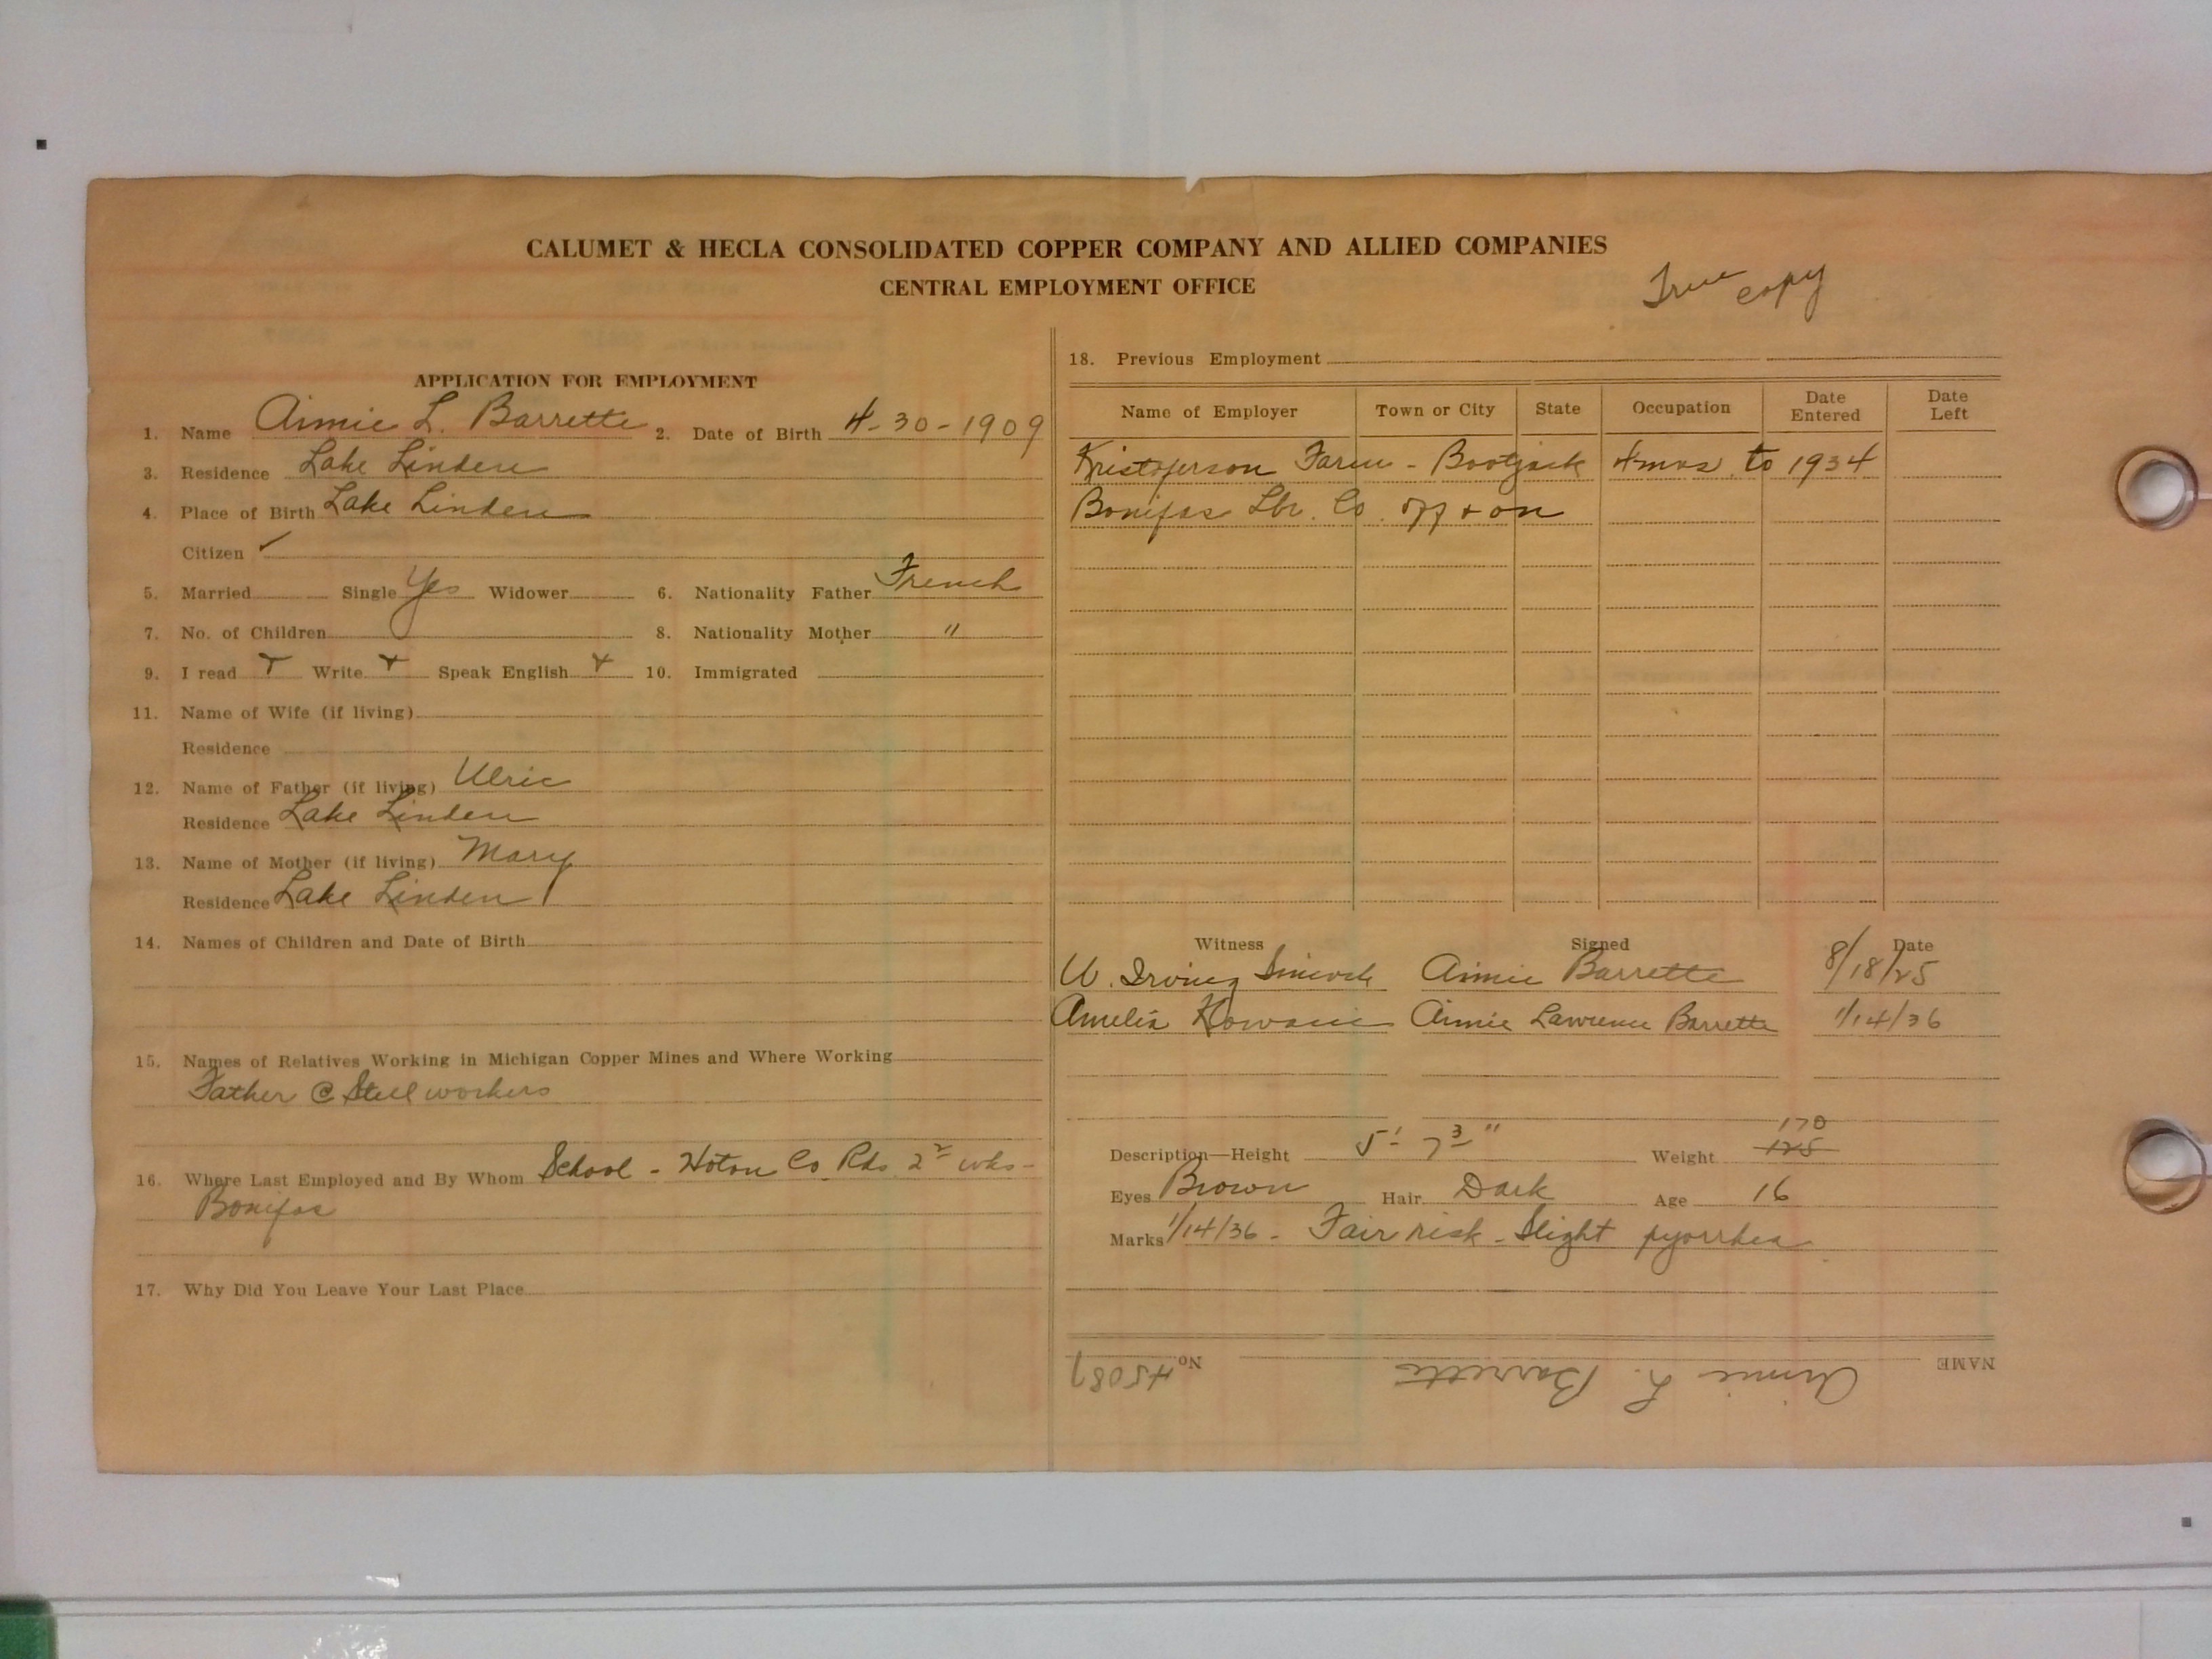 CALUMET & HECLA CONSOLIDATED COPPER COMPANY AND ALLIED COMPANIES
CENTRAL EMPLOYMENT OFFICE
True copy
APPLICATION FOR EMPLOYMENT
1. Name Aimie L. Barrette 2. Date of Birth 4-30-1909
3. Residence Lake Linden
4. Place of Birth Lake Linden
Citizen ✓
5. Married Single Yes Widower 6. Nationality Father French
7. No. of Children 8. Nationality Mother "
9. I read + Write + Speak English + 10. Immigrated
11. Name of Wife (if living)
Residence
12. Name of Father (if living) Ulric
Residence Lake Linden
13. Name of Mother (if living) Mary
Residence Lake Linden
14. Names of Children and Date of Birth
15. Names of Relatives Working in Michigan Copper Mines and Where Working
Father @ Steel workers
16. Where Last Employed and By Whom School - Hoton Co. Rds. 2 wks -
Bonifas
17. Why Did You Leave Your Last Place
18. Previous Employment
Name of Employer Town or City State Occupation Date Entered Date Left
Kristoferson Farm - Bootjack 4 mos. to 1934
Bonifas Lbr. Co. off + on
Witness Signed Date
W. Irving Aimie Barrette 8/18/25
Amelia Aimie Lawrence Barrette 1/14/36
170
Description—Height 5' 7 3" Weight 125
Eyes Brown Hair Dark Age 16
Marks 1/14/36 - Fair risk - Slight pyorrhea
NAME Aimie L. Barrette No. 45087